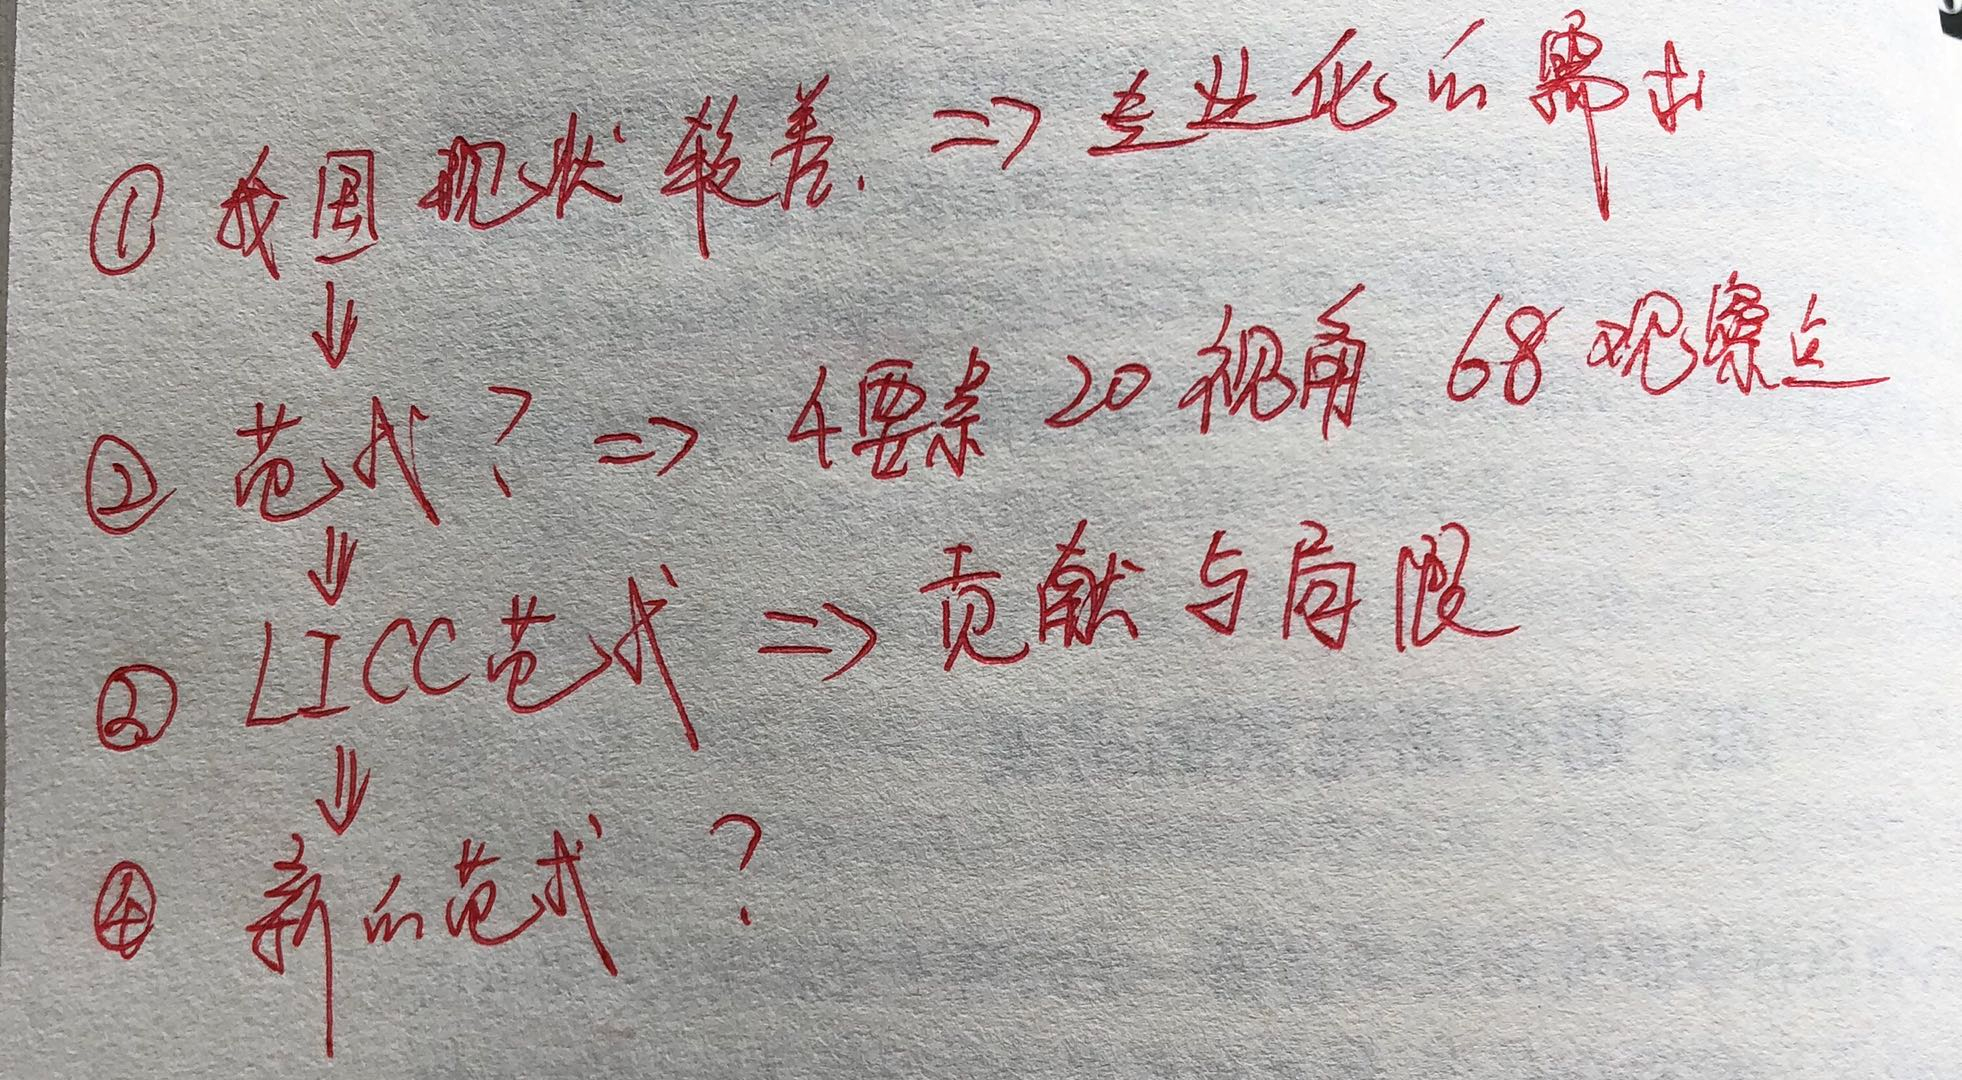 ① 我国现状较差. => 专业化的需求
↓
② 范式? => 4要素 20视角 68观察点
↓
② LICC范式 => 贡献与局限
↓
④ 新的范式?